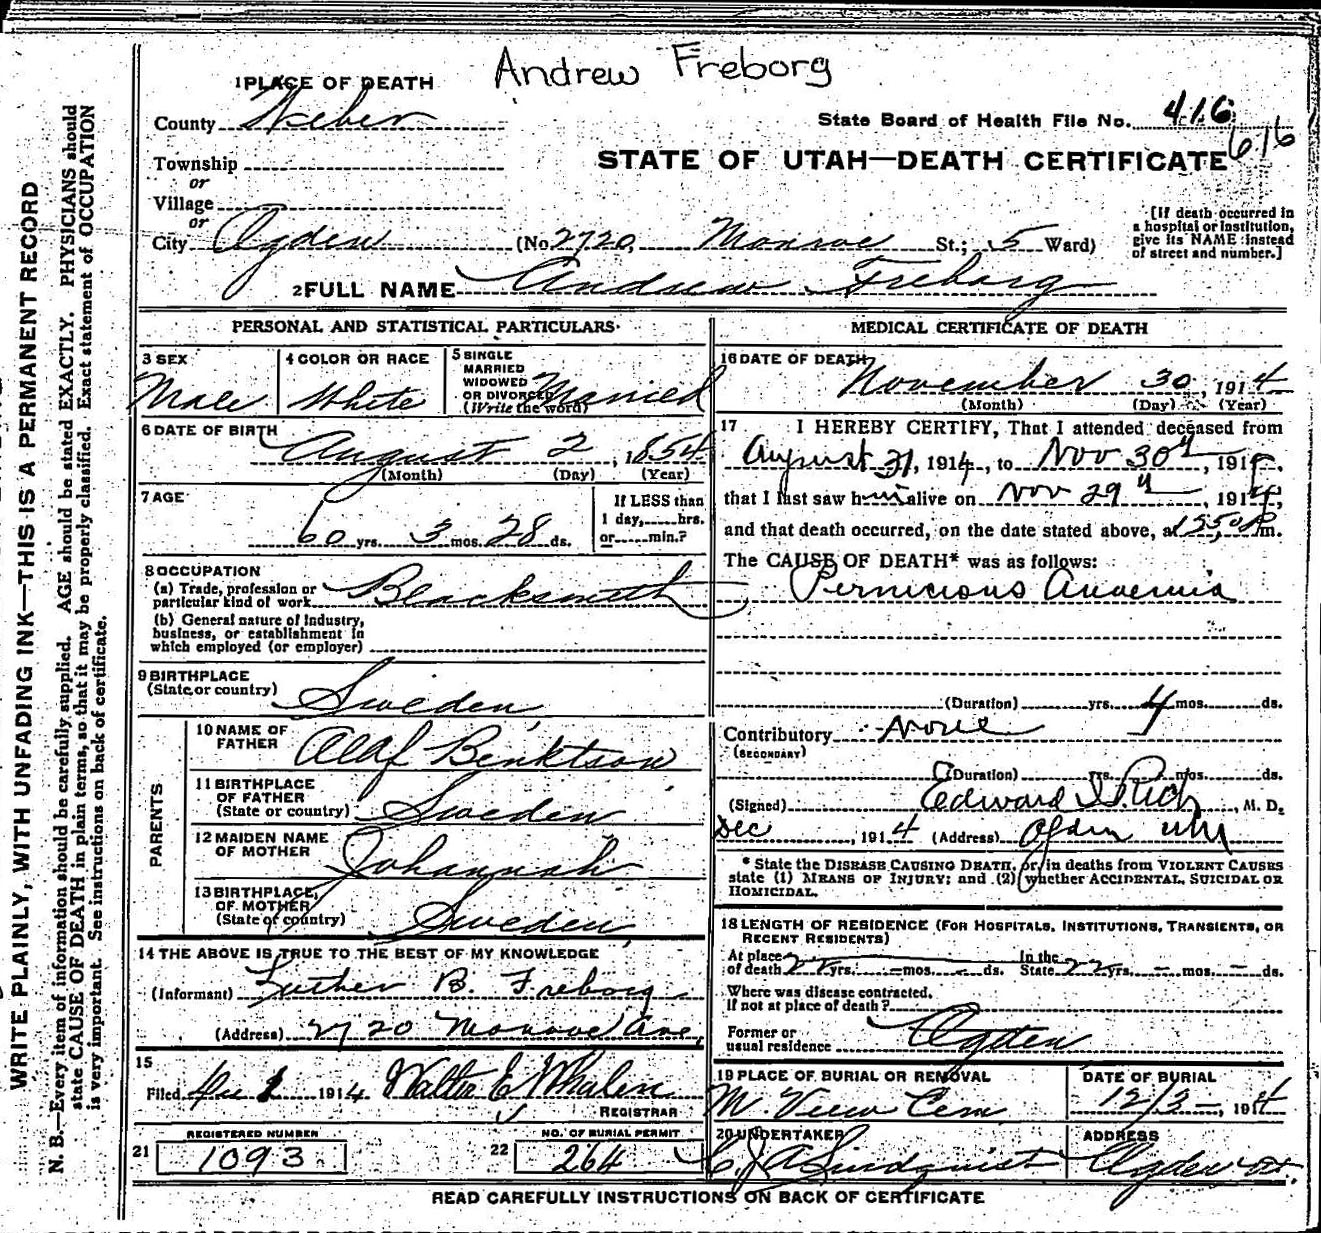 Andrew Freborg
1 PLACE OF DEATH
County Weber
State Board of Health File No. 416
616
STATE OF UTAH—DEATH CERTIFICATE
Township
or
Village
or
City Ogden (No 2720 Monroe St.; 5 Ward)
[If death occurred in
a hospital or institution,
give its NAME instead
of street and number.]
2 FULL NAME Andrew Freborg
PERSONAL AND STATISTICAL PARTICULARS
3 SEX
Male
4 COLOR OR RACE
White
5 SINGLE
MARRIED
WIDOWED
OR DIVORCED
(Write the word)
Married
6 DATE OF BIRTH
August 2, 1854
(Month) (Day) (Year)
7 AGE
60 yrs. 3 mos. 28 ds.
If LESS than
1 day, hrs.
or min.?
8 OCCUPATION
(a) Trade, profession or
particular kind of work Blacksmith
(b) General nature of Industry,
business, or establishment in
which employed (or employer)
9 BIRTHPLACE
(State or country) Sweden
PARENTS
10 NAME OF
FATHER Olaf Benktson
11 BIRTHPLACE
OF FATHER
(State or country) Sweden
12 MAIDEN NAME
OF MOTHER Johannah
13 BIRTHPLACE
OF MOTHER
(State or country) Sweden
14 THE ABOVE IS TRUE TO THE BEST OF MY KNOWLEDGE
(Informant) Luther B. Freborg
(Address) 2720 Monroe Ave
15
Filed 1914 Walter E Whalen
REGISTRAR
21 REGISTERED NUMBER
1093
22 NO. OF BURIAL PERMIT
264
MEDICAL CERTIFICATE OF DEATH
16 DATE OF DEATH
November 30, 1914
(Month) (Day) (Year)
17 I HEREBY CERTIFY, That I attended deceased from
August 31, 1914, to Nov 30th, 1914,
that I last saw him alive on Nov 29th, 1914,
and that death occurred, on the date stated above, at m.
The CAUSE OF DEATH* was as follows:
Pernicious Anaemia
(Duration) yrs. 4 mos. ds.
Contributory None
(SECONDARY)
(Duration) yrs. mos. ds.
(Signed) Edward I. Rich, M. D.
Dec, 1914 (Address) Ogden Utah
* State the DISEASE CAUSING DEATH, or, in deaths from VIOLENT CAUSES
state (1) MEANS OF INJURY; and (2) whether ACCIDENTAL, SUICIDAL OR
HOMICIDAL.
18 LENGTH OF RESIDENCE (FOR HOSPITALS, INSTITUTIONS, TRANSIENTS, OR
RECENT RESIDENTS)
At place
of death 22 yrs. — mos. — ds. In the
State 22 yrs. — mos. — ds.
Where was disease contracted,
If not at place of death?
Former or
usual residence Ogden
19 PLACE OF BURIAL OR REMOVAL
M. View Cem
DATE OF BURIAL
12/3—, 1914
20 UNDERTAKER
C. J. A. Lindquist
ADDRESS
Ogden Ut
READ CAREFULLY INSTRUCTIONS ON BACK OF CERTIFICATE
WRITE PLAINLY, WITH UNFADING INK—THIS IS A PERMANENT RECORD
N. B.—Every item of information should be carefully supplied. AGE should be stated EXACTLY. PHYSICIANS should
state CAUSE OF DEATH in plain terms, so that it may be properly classified. Exact statement of OCCUPATION
is very important. See instructions on back of certificate.